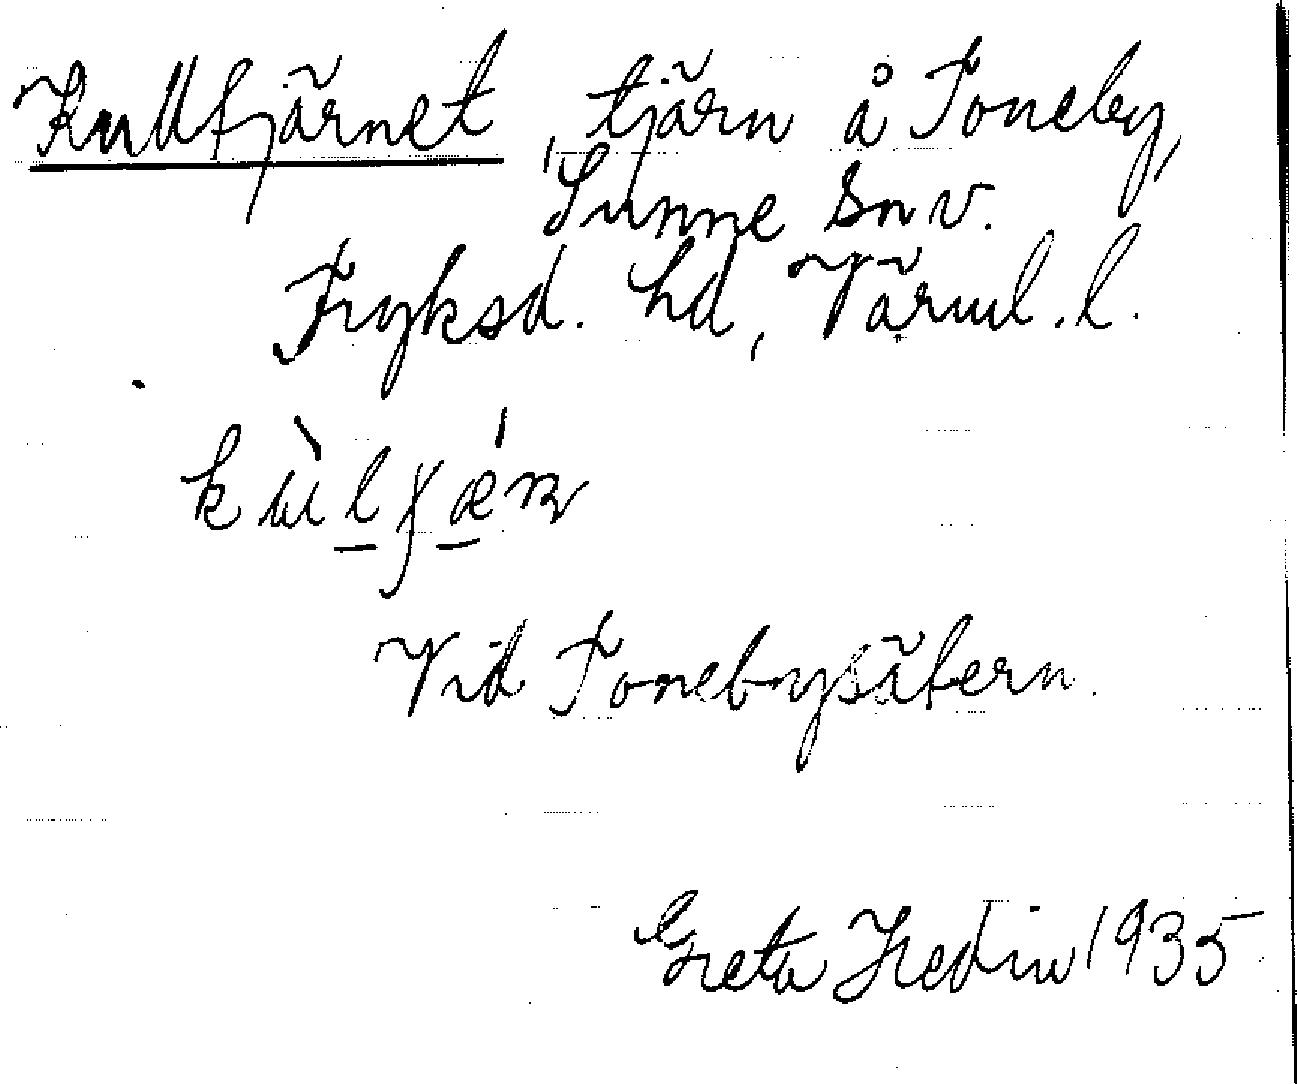 Kulltjärnet, tjärn å Toneby,
Sunne sn v.
Fryksd. hd, Värml. l.
Vid Tonebysätern.
Greta Hedin 1935